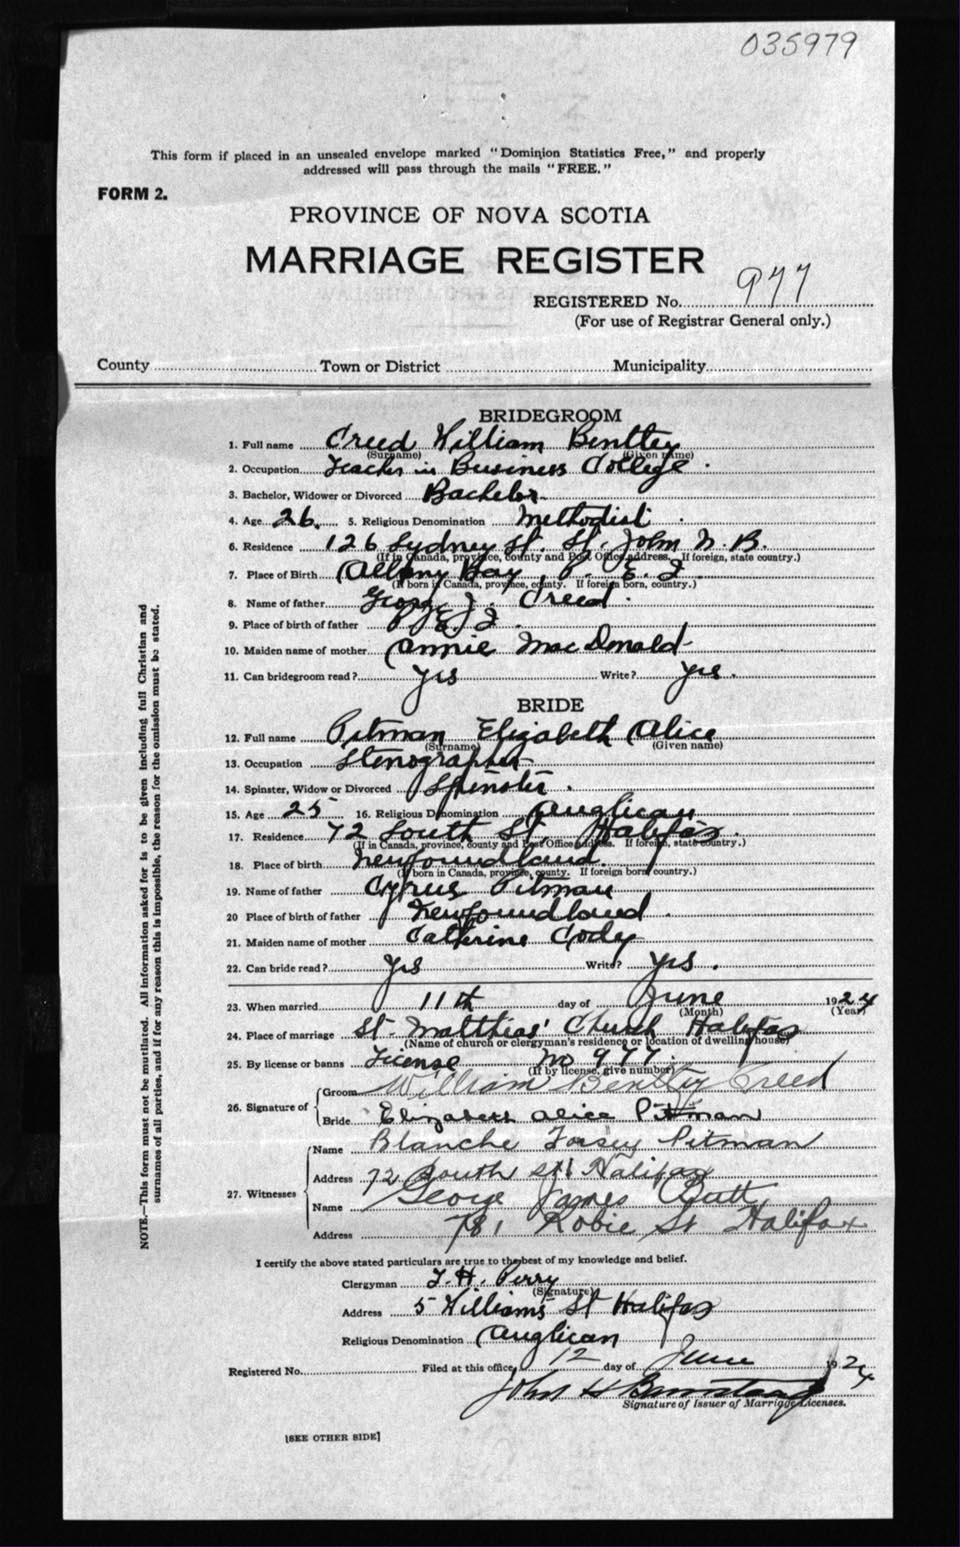 035979
This form if placed in an unsealed envelope marked "Dominion Statistics Free," and properly
addressed will pass through the mails "FREE."
FORM 2.
PROVINCE OF NOVA SCOTIA
MARRIAGE REGISTER
REGISTERED No. 977
(For use of Registrar General only.)
County Town or District Municipality
BRIDEGROOM
1. Full name Creed William Bentley
(Surname) (Given name)
2. Occupation Teacher in Business College.
3. Bachelor, Widower or Divorced Bachelor
4. Age 26. 5. Religious Denomination Methodist.
6. Residence 126 Sydney St. St. John N.B.
(If in Canada, province, county and Post Office address. If foreign, state country.)
7. Place of Birth Albany Bay, P.E.I.
(If born in Canada, province, county. If foreign born, country.)
8. Name of father George J. Creed.
9. Place of birth of father P.E.I.
10. Maiden name of mother Annie MacDonald
11. Can bridegroom read? yes Write? yes.
BRIDE
12. Full name Pitman Elizabeth Alice
(Surname) (Given name)
13. Occupation Stenographer
14. Spinster, Widow or Divorced Spinster.
15. Age 25 16. Religious Denomination Anglican
17. Residence 72 South St. Halifax.
(If in Canada, province, county and Post Office address. If foreign, state country.)
18. Place of birth Newfoundland.
(If born in Canada, province, county. If foreign born country.)
19. Name of father Cyrus Pitman
20 Place of birth of father Newfoundland.
21. Maiden name of mother Catherine Cody
22. Can bride read? yes Write? yes.
23. When married 11th day of June 1924
(Month) (Year)
24. Place of marriage St. Matthias' Church Halifax
(Name of church or clergyman's residence or location of dwelling house)
25. By license or banns License No 977.
(If by license, give number)
26. Signature of Groom William Bentley Creed
Bride Elizabeth Alice Pitman
27. Witnesses Name Blanche Pitman
Address 72 South St Halifax
Name George James Butt
Address 781 Robie St Halifax
I certify the above stated particulars are true to the best of my knowledge and belief.
Clergyman T. H. Perry
(Signature)
Address 5 Williams St Halifax
Religious Denomination Anglican
Registered No. Filed at this office 12 day of June 1924
John H
Signature of Issuer of Marriage Licenses.
[SEE OTHER SIDE]
NOTE.—This form must not be mutilated. All information asked for is to be given including full Christian and
surnames of all parties, and if for any reason this is impossible, the reason for the omission must be stated.